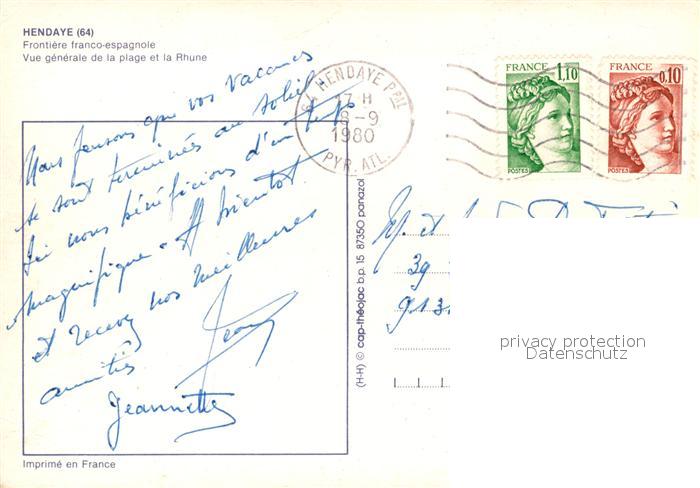 HENDAYE (64)
Frontière franco-espagnole
Vue générale de la plage et la Rhune
64 HENDAYE PPAL
17 H
8-9
1980
PYR. ATL.
FRANCE
1,10
POSTES
FRANCE
0,10
POSTES
Nous pensons que vos vacances
se sont terminées au soleil
Ici nous bénéficions d'un temps
magnifique. A bientôt
et recevez nos meilleures
amitiés
Jean
Jeannette
M. et
39
913
(H-H) © cap-théojac b.p. 15 87350 panazol
privacy protection
Datenschutz
Imprimé en France